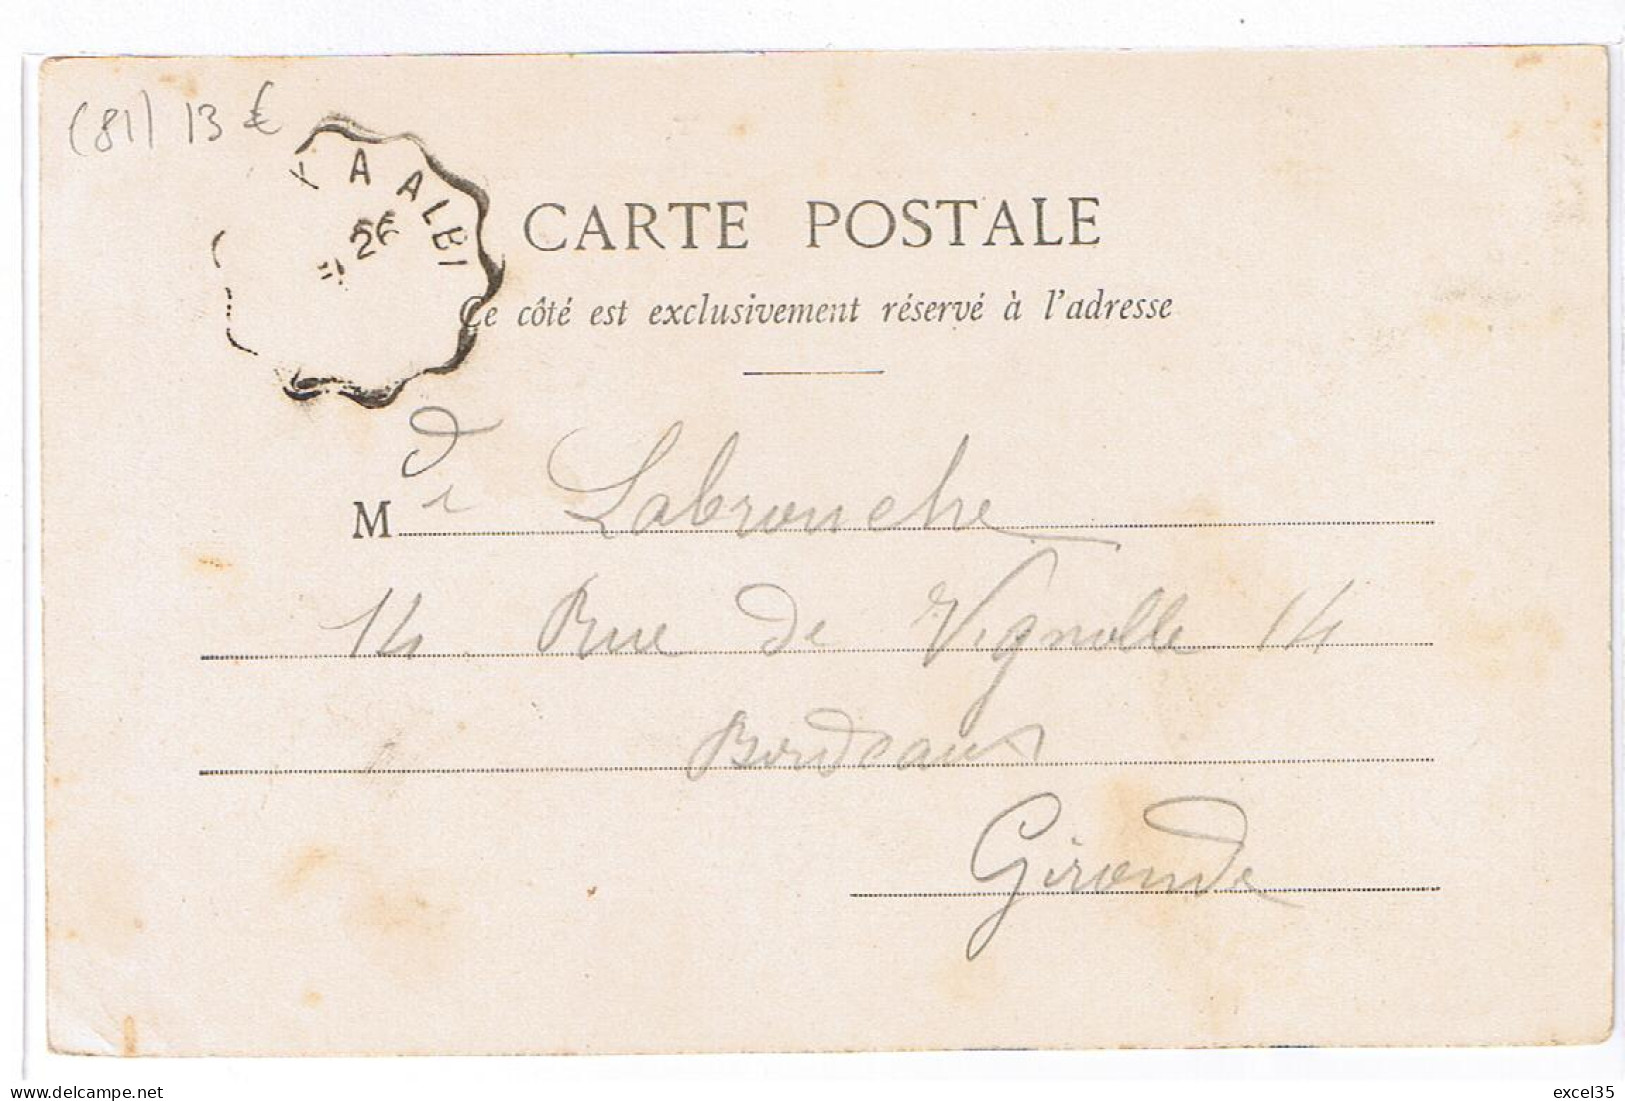 (81) 13 €
A ALBI
26
CARTE POSTALE
Ce côté est exclusivement réservé à l'adresse
M r Labrouche
14 Rue de Vignolle 14
Bordeaux
Gironde
delcampe.net
excel35